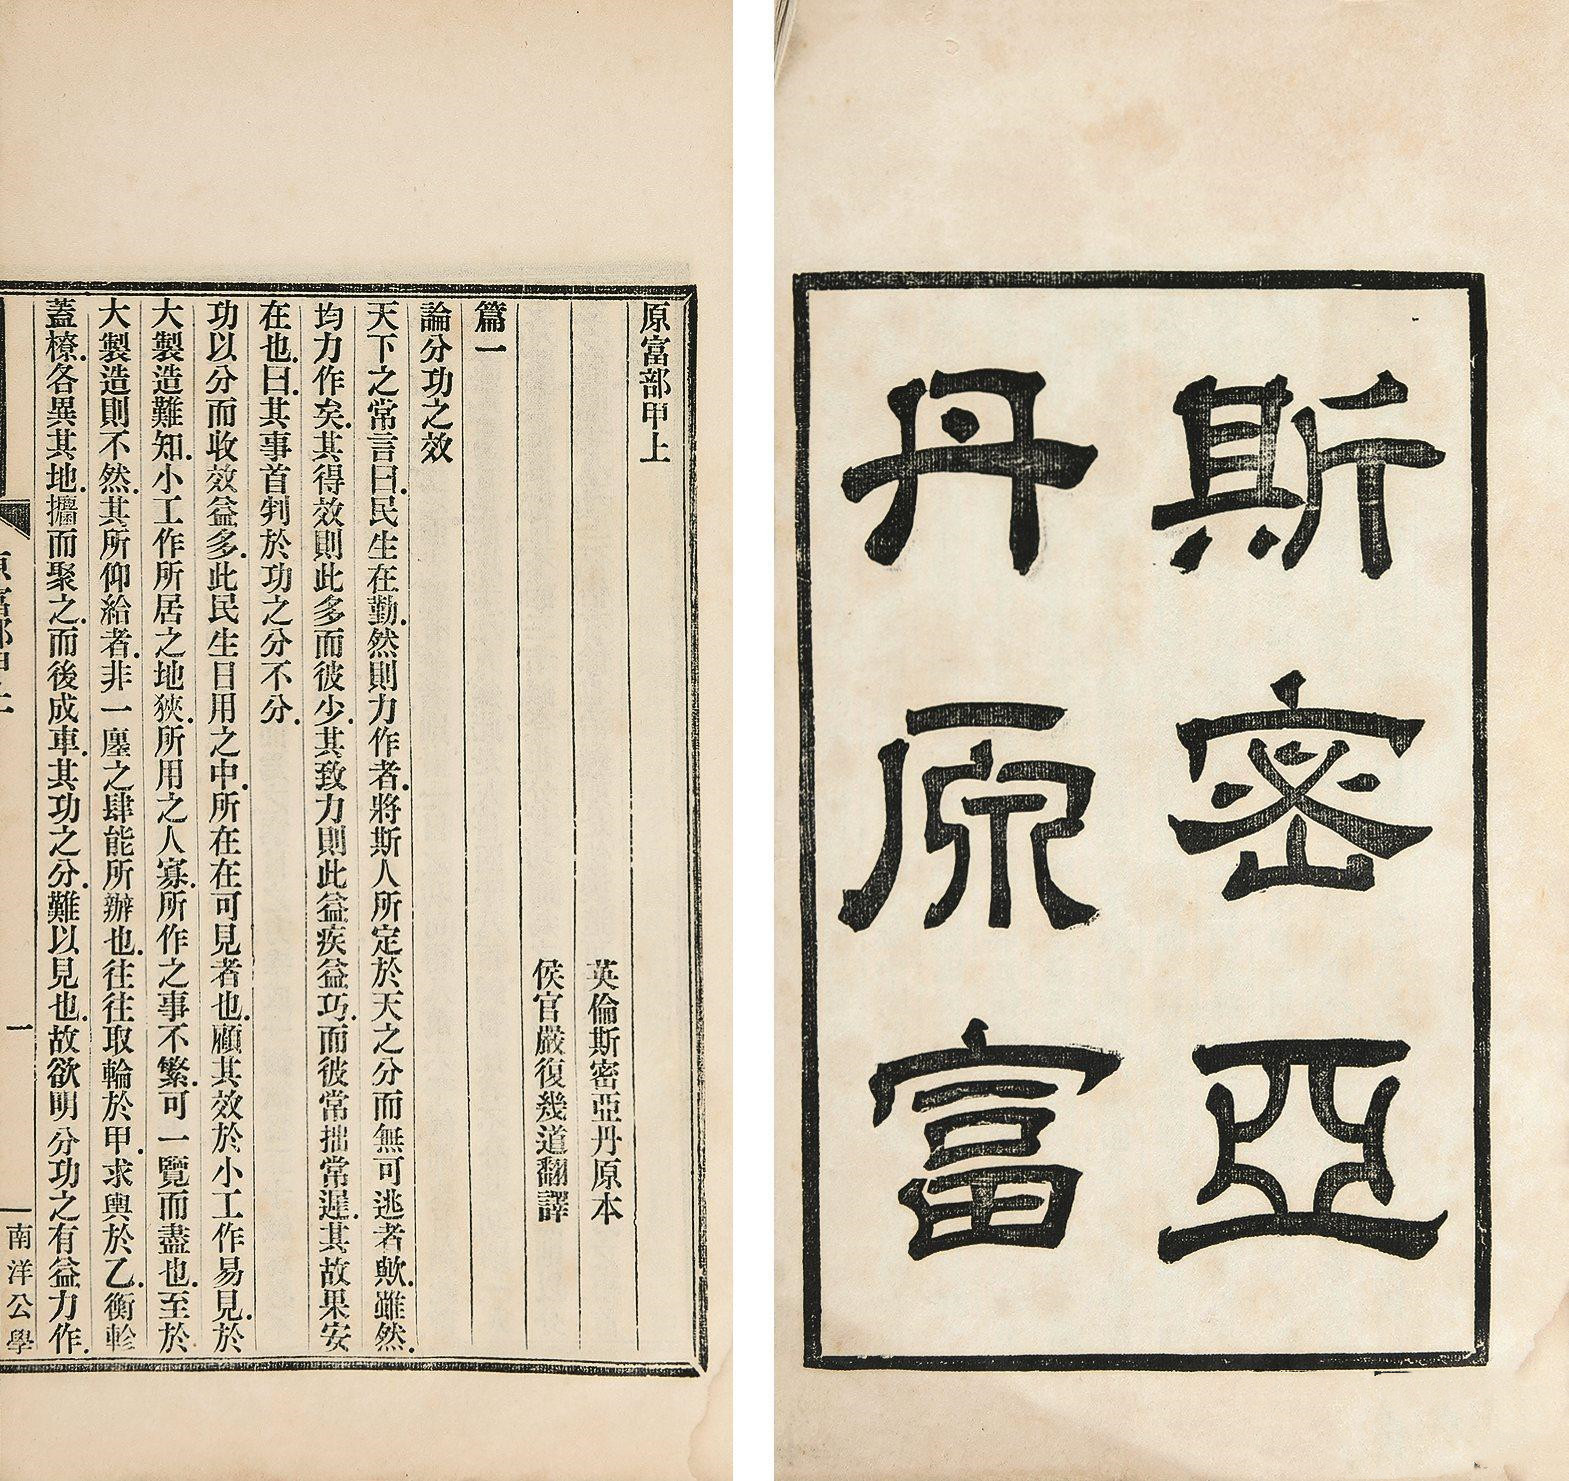 斯密亞
丹原富
原富部甲上
英倫斯密亞丹原本
侯官嚴復幾道翻譯
篇一
論分功之效
天下之常言曰.民生在勤.然則力作者.將斯人所定於天之分而無可逃者歟.雖然.
均力作矣.其得效則此多而彼少.其致力則此益疾益巧.而彼常拙常遲.其故果安
在也.曰.其事首判於功之分不分.
功以分而收效益多.此民生日用之中.所在在可見者也.顧其效於小工作易見.於
大製造難知.小工作所居之地狹.所用之人寡.所作之事不繁.可一覽而盡也.至於
大製造則不然.其所仰給者.非一廛之肆能所辦也.往往取輪於甲.求輿於乙.衡軫
蓋橑.各異其地.攟而聚之.而後成車.其功之分.難以見也.故欲明分功之有益力作.
原富部甲上
一
南洋公學